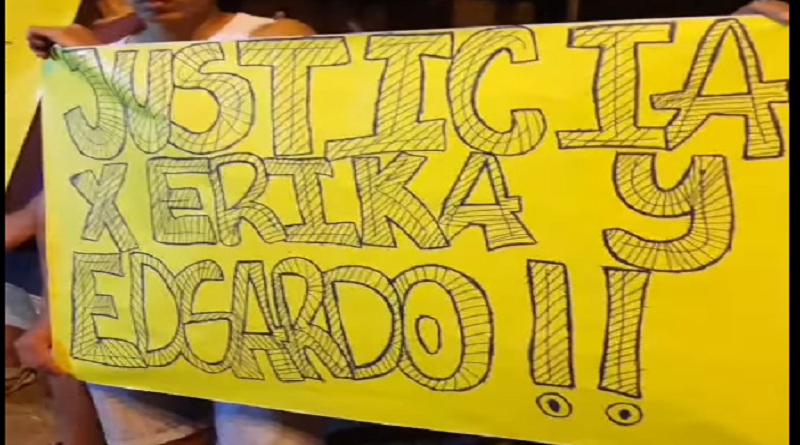 JUSTICIA
X ERIKA Y
EDGARDO!!